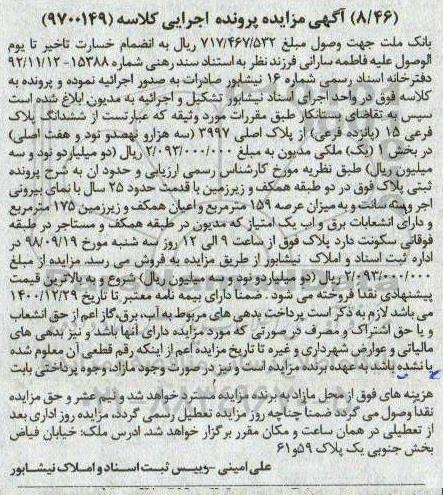 (۸/۴۶) آگهی مزایده پرونده اجرایی کلاسه (۹۷۰۰۱۴۹)
بانک ملت جهت وصول مبلغ ۷۱۷/۴۶۷/۵۳۲ ریال به انضمام خسارت تاخیر تا یوم
الوصول علیه فاطمه سارانی فرزند نظر به استناد سند رهنی شماره ۱۵۳۸۸-۹۲/۱۱/۱۲
دفترخانه اسناد رسمی شماره ۱۶ نیشابور صادرات به صدور اجرائیه نموده و پرونده به
کلاسه فوق در واحد اجرای اسناد نیشابور تشکیل و اجرائیه به مدیون ابلاغ شده است
سپس به تقاضای بستانکار طبق مقررات مورد وثیقه که عبارتست از ششدانگ پلاک
فرعی ۱۵ (پانزده فرعی) از پلاک اصلی ۳۹۹۷ (سه هزارو نهصدو نود و هفت اصلی)
در بخش ۱ (یک) ملکی مدیون به مبلغ ۲/۰۹۳/۰۰۰/۰۰۰ ریال (دو میلیاردو نود و سه
میلیون ریال) طبق نظریه مورخ کارشناس رسمی ارزیابی و حدود ان به شرح پرونده
ثبتی پلاک فوق در دو طبقه همکف و زیرزمین با قدمت حدود ۲۵ سال با نمای بیرونی
اجر وسیمانت و به میزان عرصه ۱۵۹ مترمربع و اعیان همکف و زیرزمین ۱۷۵ مترمربع
و دارای انشعابات برق و اب یک امتیاز که مدیون در طبقه همکف و مستاجر در طبقه
فوقانی سکونت دارد پلاک فوق از ساعت ۹ الی ۱۲ روز سه شنبه مورخ ۹۸/۰۹/۱۹ در
اداره ثبت اسناد و املاک نیشابور از طریق مزایده به فروش می رسد. مزایده از مبلغ
۲/۰۹۳/۰۰۰/۰۰۰ ریال (دو میلیاردو نود و سه میلیون ریال) شروع و به بالاترین قیمت
پیشنهادی نقدا فروخته می شود. ضمنا دارای بیمه نامه معتبر تا تاریخ ۱۴۰۰/۱۲/۲۹
می باشد لازم به ذکر است پرداخت بدهی های مربوط به آب، برق، گاز اعم از حق انشعاب
و یا حق اشتراک و مصرف در صورتی که مورد مزایده دارای آنها باشد و نیز بدهی های
مالیاتی و عوارض شهرداری و غیره تا تاریخ مزایده اعم از اینکه رقم قطعی آن معلوم شده
یا نشده باشد به عهده برنده مزایده است و نیز در صورت وجود مازاد وجوه پرداختی بابت
هزینه های فوق از محل مازاد به برنده مزایده مسترد خواهد شد و نیم عشر و حق مزایده
نقدا وصول می گردد ضمنا چناچه روز مزایده تعطیل رسمی گردد، مزایده روز اداری بعد
از تعطیلی در همان ساعت و مکان مقرر برگزار خواهد شد. ادرس ملک: خیابان فیاض
بخش جنوبی یک پلاک ۵۹و۶۱
علی امینی -رییس ثبت اسناد و املاک نیشابور